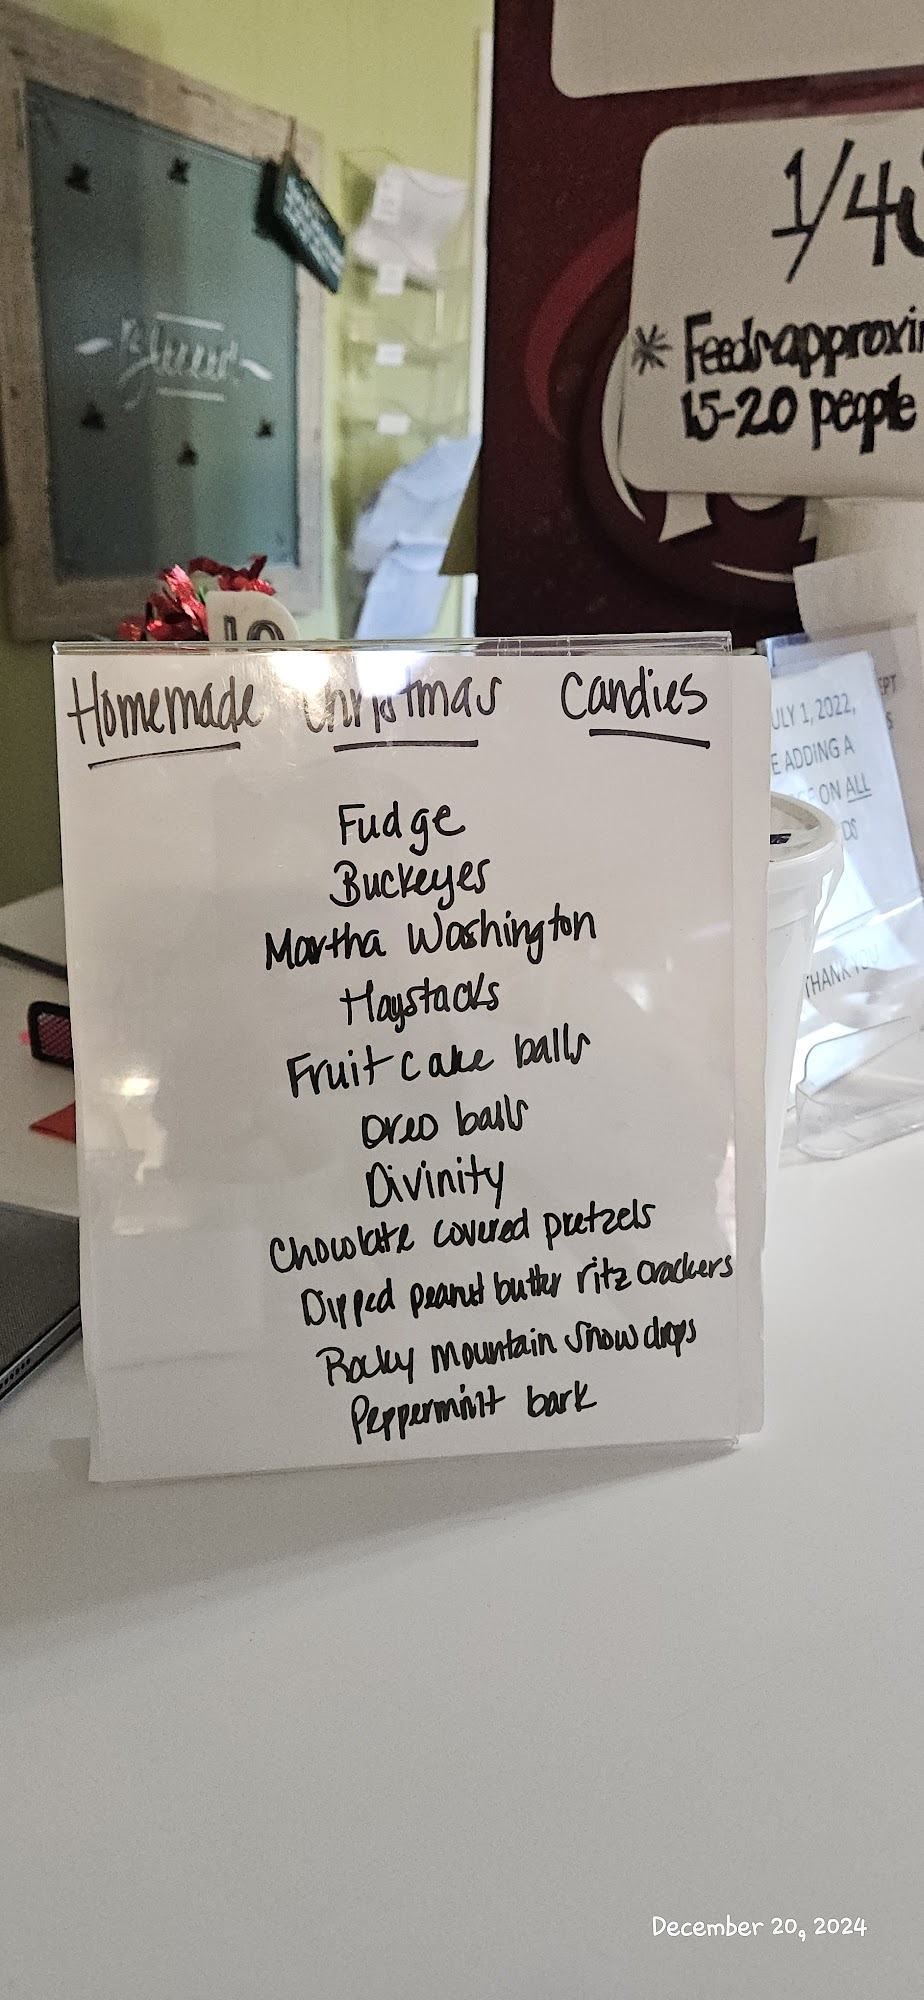 1/4
* Feeds approxi
15-20 people
Homemade Christmas Candies
Fudge
Buckeyes
Martha Washington
Haystacks
Fruit cake balls
Oreo balls
Divinity
Chocolate covered pretzels
Dipped peanut butter ritz crackers
Rocky Mountain Snow drops
Peppermint bark
ULY 1, 2022,
E ADDING A
ON ALL
DS
THANK YOU
December 20, 2024